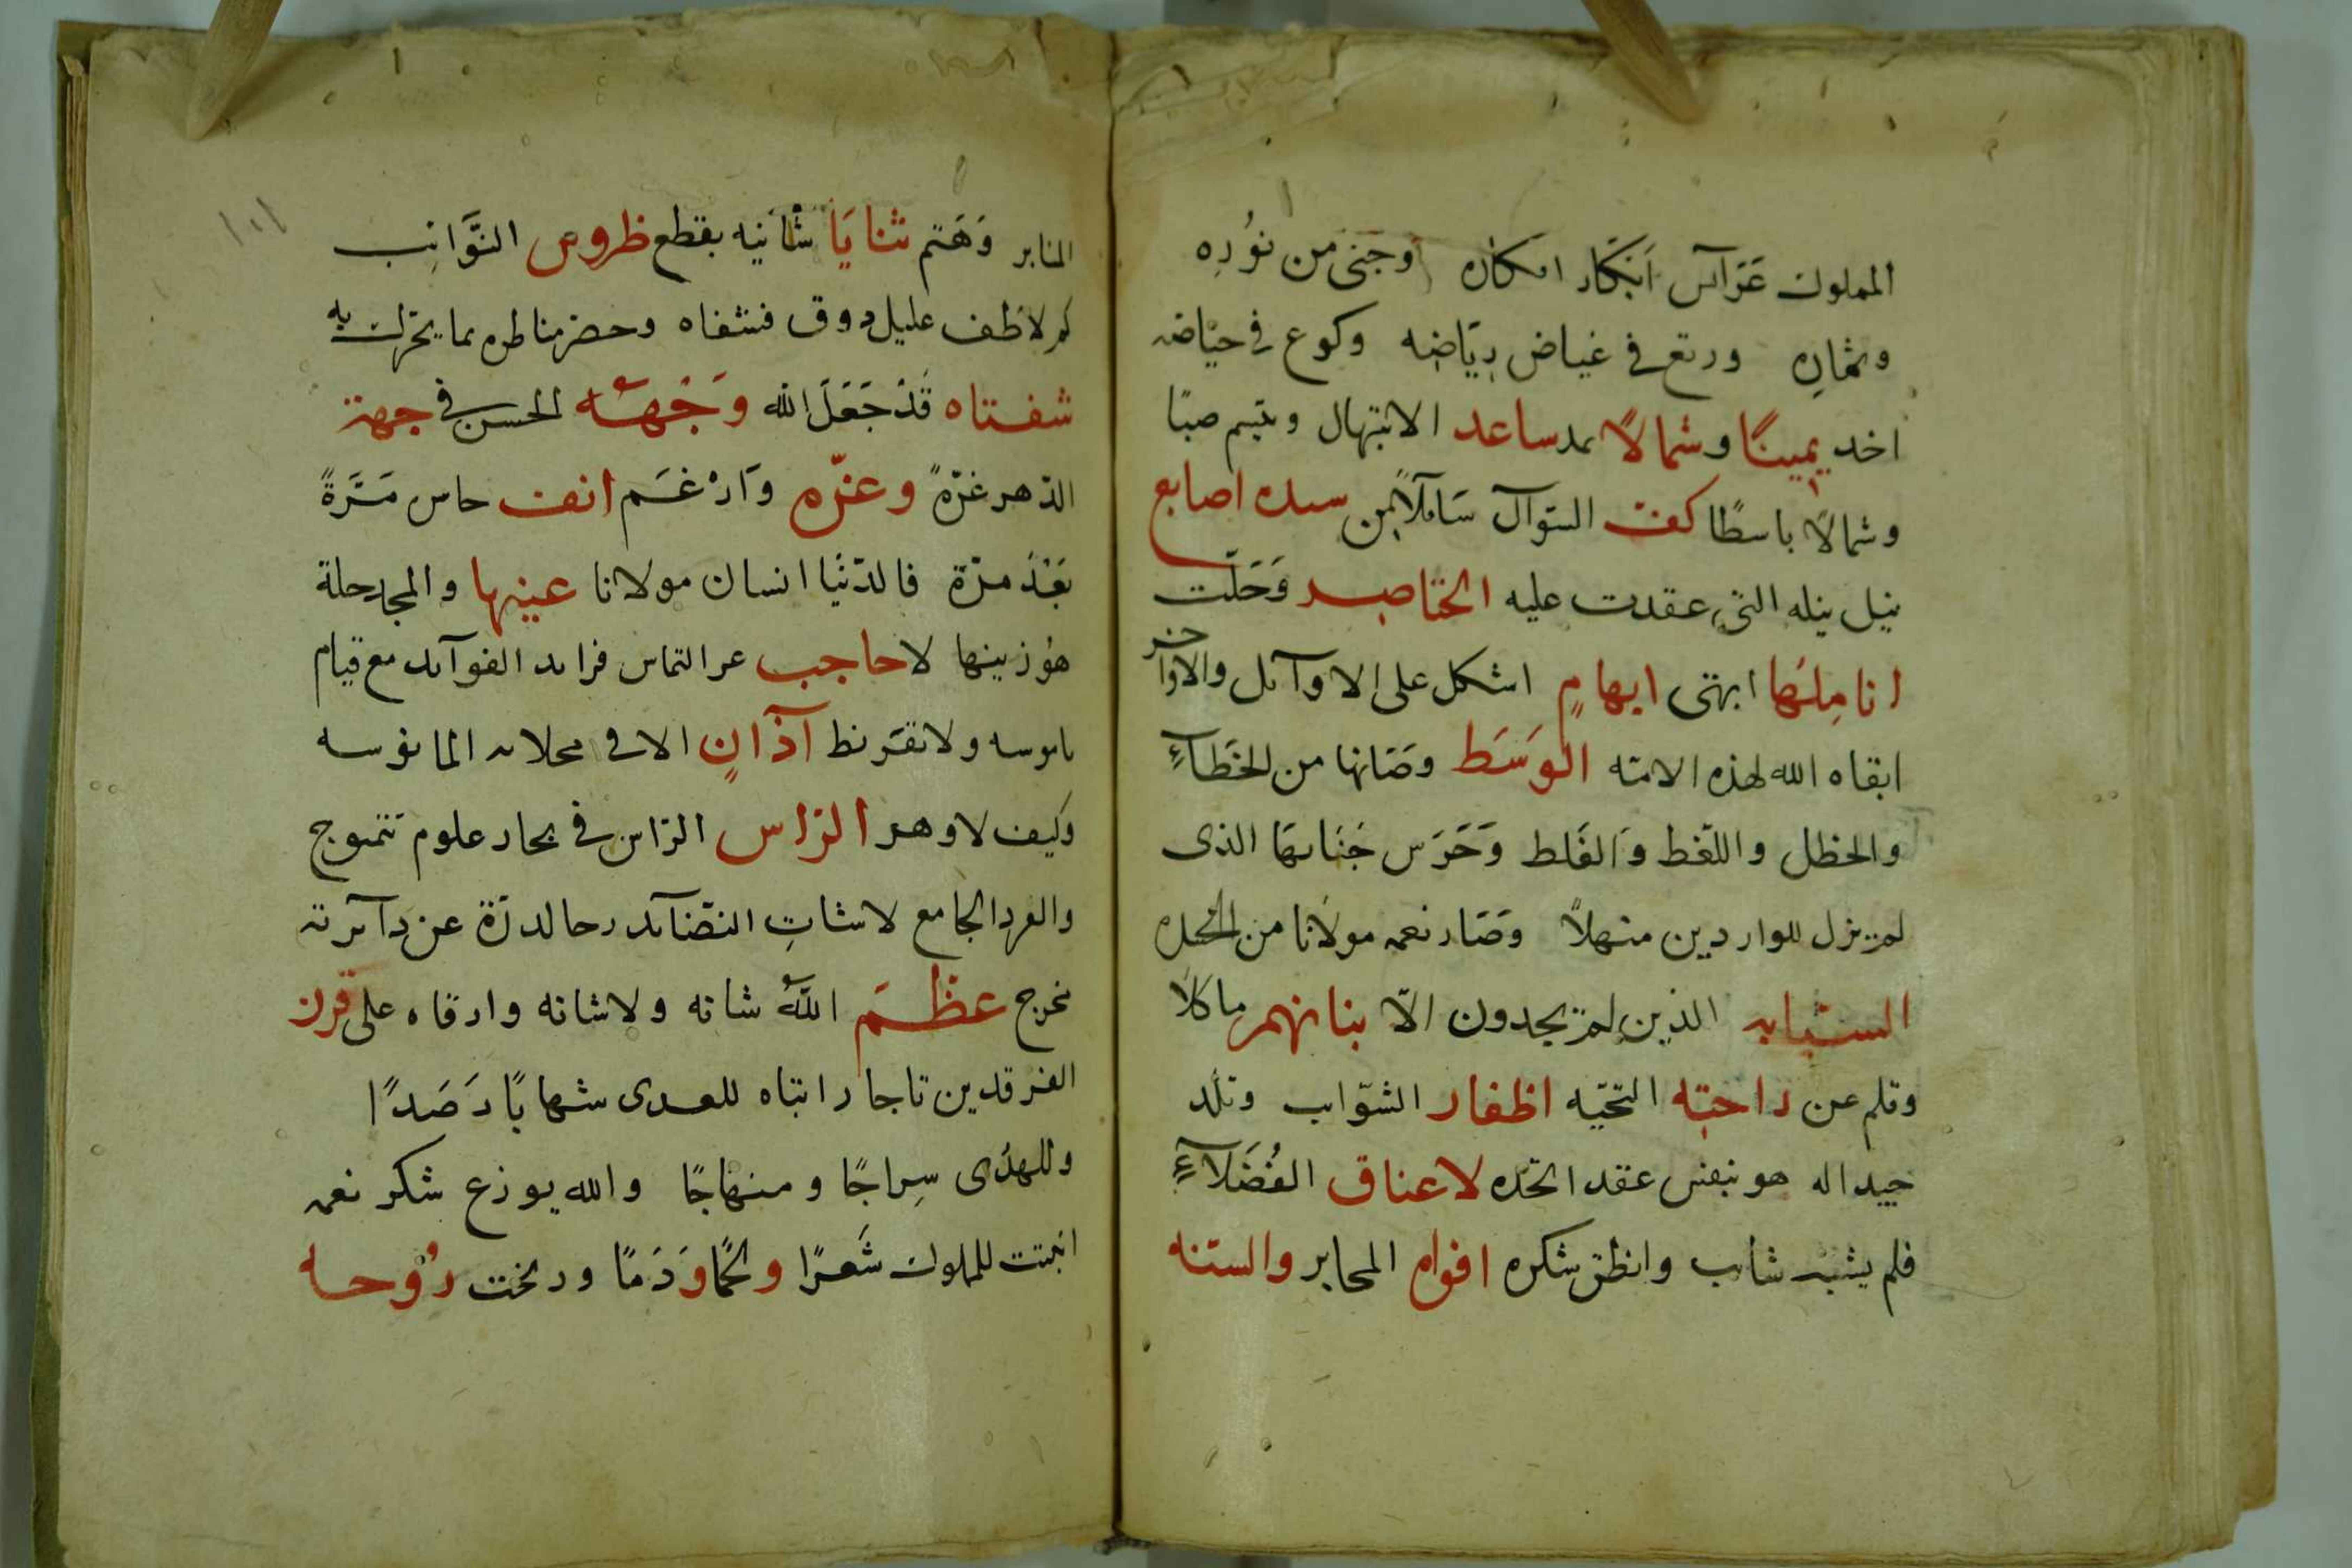 المملوك عَرَآئس اَبْكَار افكاره وجَنَى من نَوْرِه
وثمارِه ورتع في غياض رِيَاضِه وكرع في حيَاضه
اخد يمينًا وشمالًا بمد ساعد الابتهال ويتيم صبًا
وشمالًا باسطًا كف السّوآل سَآئلًا من سده اصابع
نيل نيله التى عقدت عليه الخناصر وَحَلّت
انامِلهَا ابهى ابهامٍ اشكل على الاوآئل والاواخر
ابقاه الله لهذه الامّه الوَسَط وصَانها من الخَطَآءِ
والخطل واللّغط وَالغَلط وَحَرَس جَنَابهَا الذى
لم يزل للواردين منهلاً وصَار نعمه مولانا من
السبابه الذين لم يجدون الاّ بنانهم ماكلاً
وقلم عن راحته التحيّه اظفار الشوّايب وقلّد
جيداله هو بنفس عقد اتخذه لاعناق الفُضَلآءِ
فلم يشبه شآئب وانطق شكره افواه المحابر والسنه
المنابر وَهَتم ثنايَا شانيه بقطع ظروس النَّوَائِب
كم لاطف عليل ذوق فشفاه وحضر مناظره بما يحرك به
شفتاه قَدْ جَعَلَ الله وَجْهَهُ الحسن في جهة
الدّهر غرّةً وعزّه وَارْغَم انف حاس مَرَّةً
بَعْدَ مرّة فالدّنيَا انسان مولانا عينها والمجد حلة
هوُ زينها لا حاجب عن التماس فرائد الفوآئد مع قيام
ناموسه ولا تقرّط آذانٍ الا في محلاته المانوسه
وكيف لا وهو الرّاس الرّاس في بحار علوم تتموج
والفرد الجامع لاشتاتِ القضايد رحالدرّة عن دآئرته
تخرج عظّمَ اللّهُ شانه ولا شانه وارقاه على قرن
الفرقدين تاجا وابقاه للعدى شهابًا رَصَدًا
وللهدَى سِراجًا ومنهاجًا والله يوزع شكر نعمه
انبتت للملوك شَعرًا ولحمًا وَدَمًا ونفخت رُوحا
١٠١